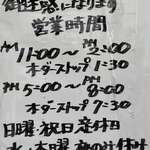 御迷惑になります
営業時間
AM 11:00〜PM 2:00
オーダーストップ 1:30
PM 5:00〜PM 8:00
オーダーストップ 7:30
日曜・祝日定休日
水・木曜夜の部休み